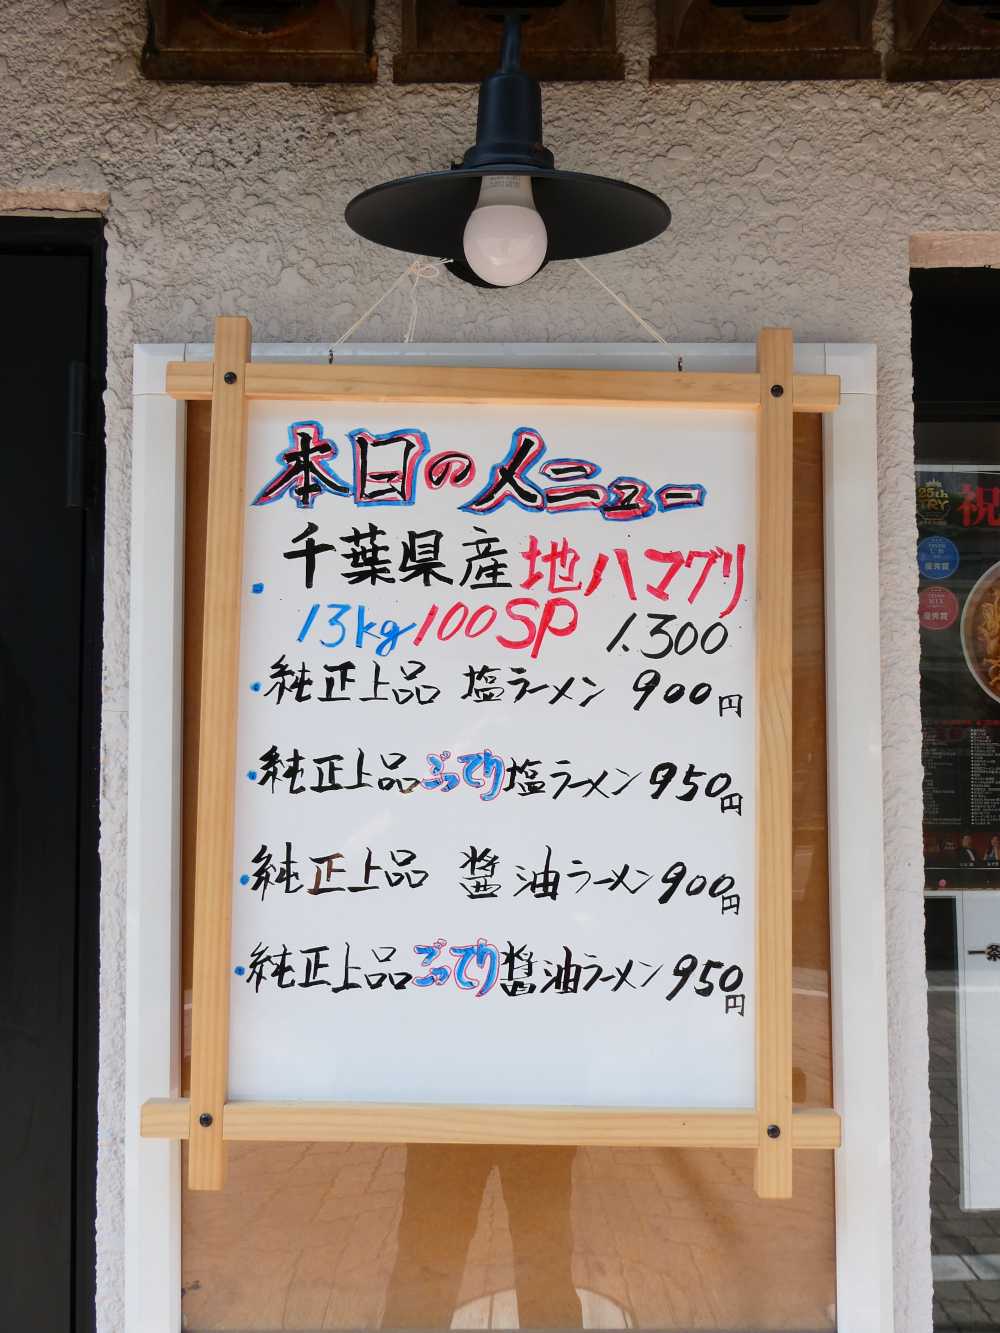 本日のメニュー
千葉県産地ハマグリ
13kg100SP 1.300
純正上品 塩ラーメン 900円
純正上品こってり塩ラーメン950円
純正上品 醤油ラーメン900円
純正上品こってり醤油ラーメン950円
25th
TRY
祝
優秀賞
優秀賞
一条